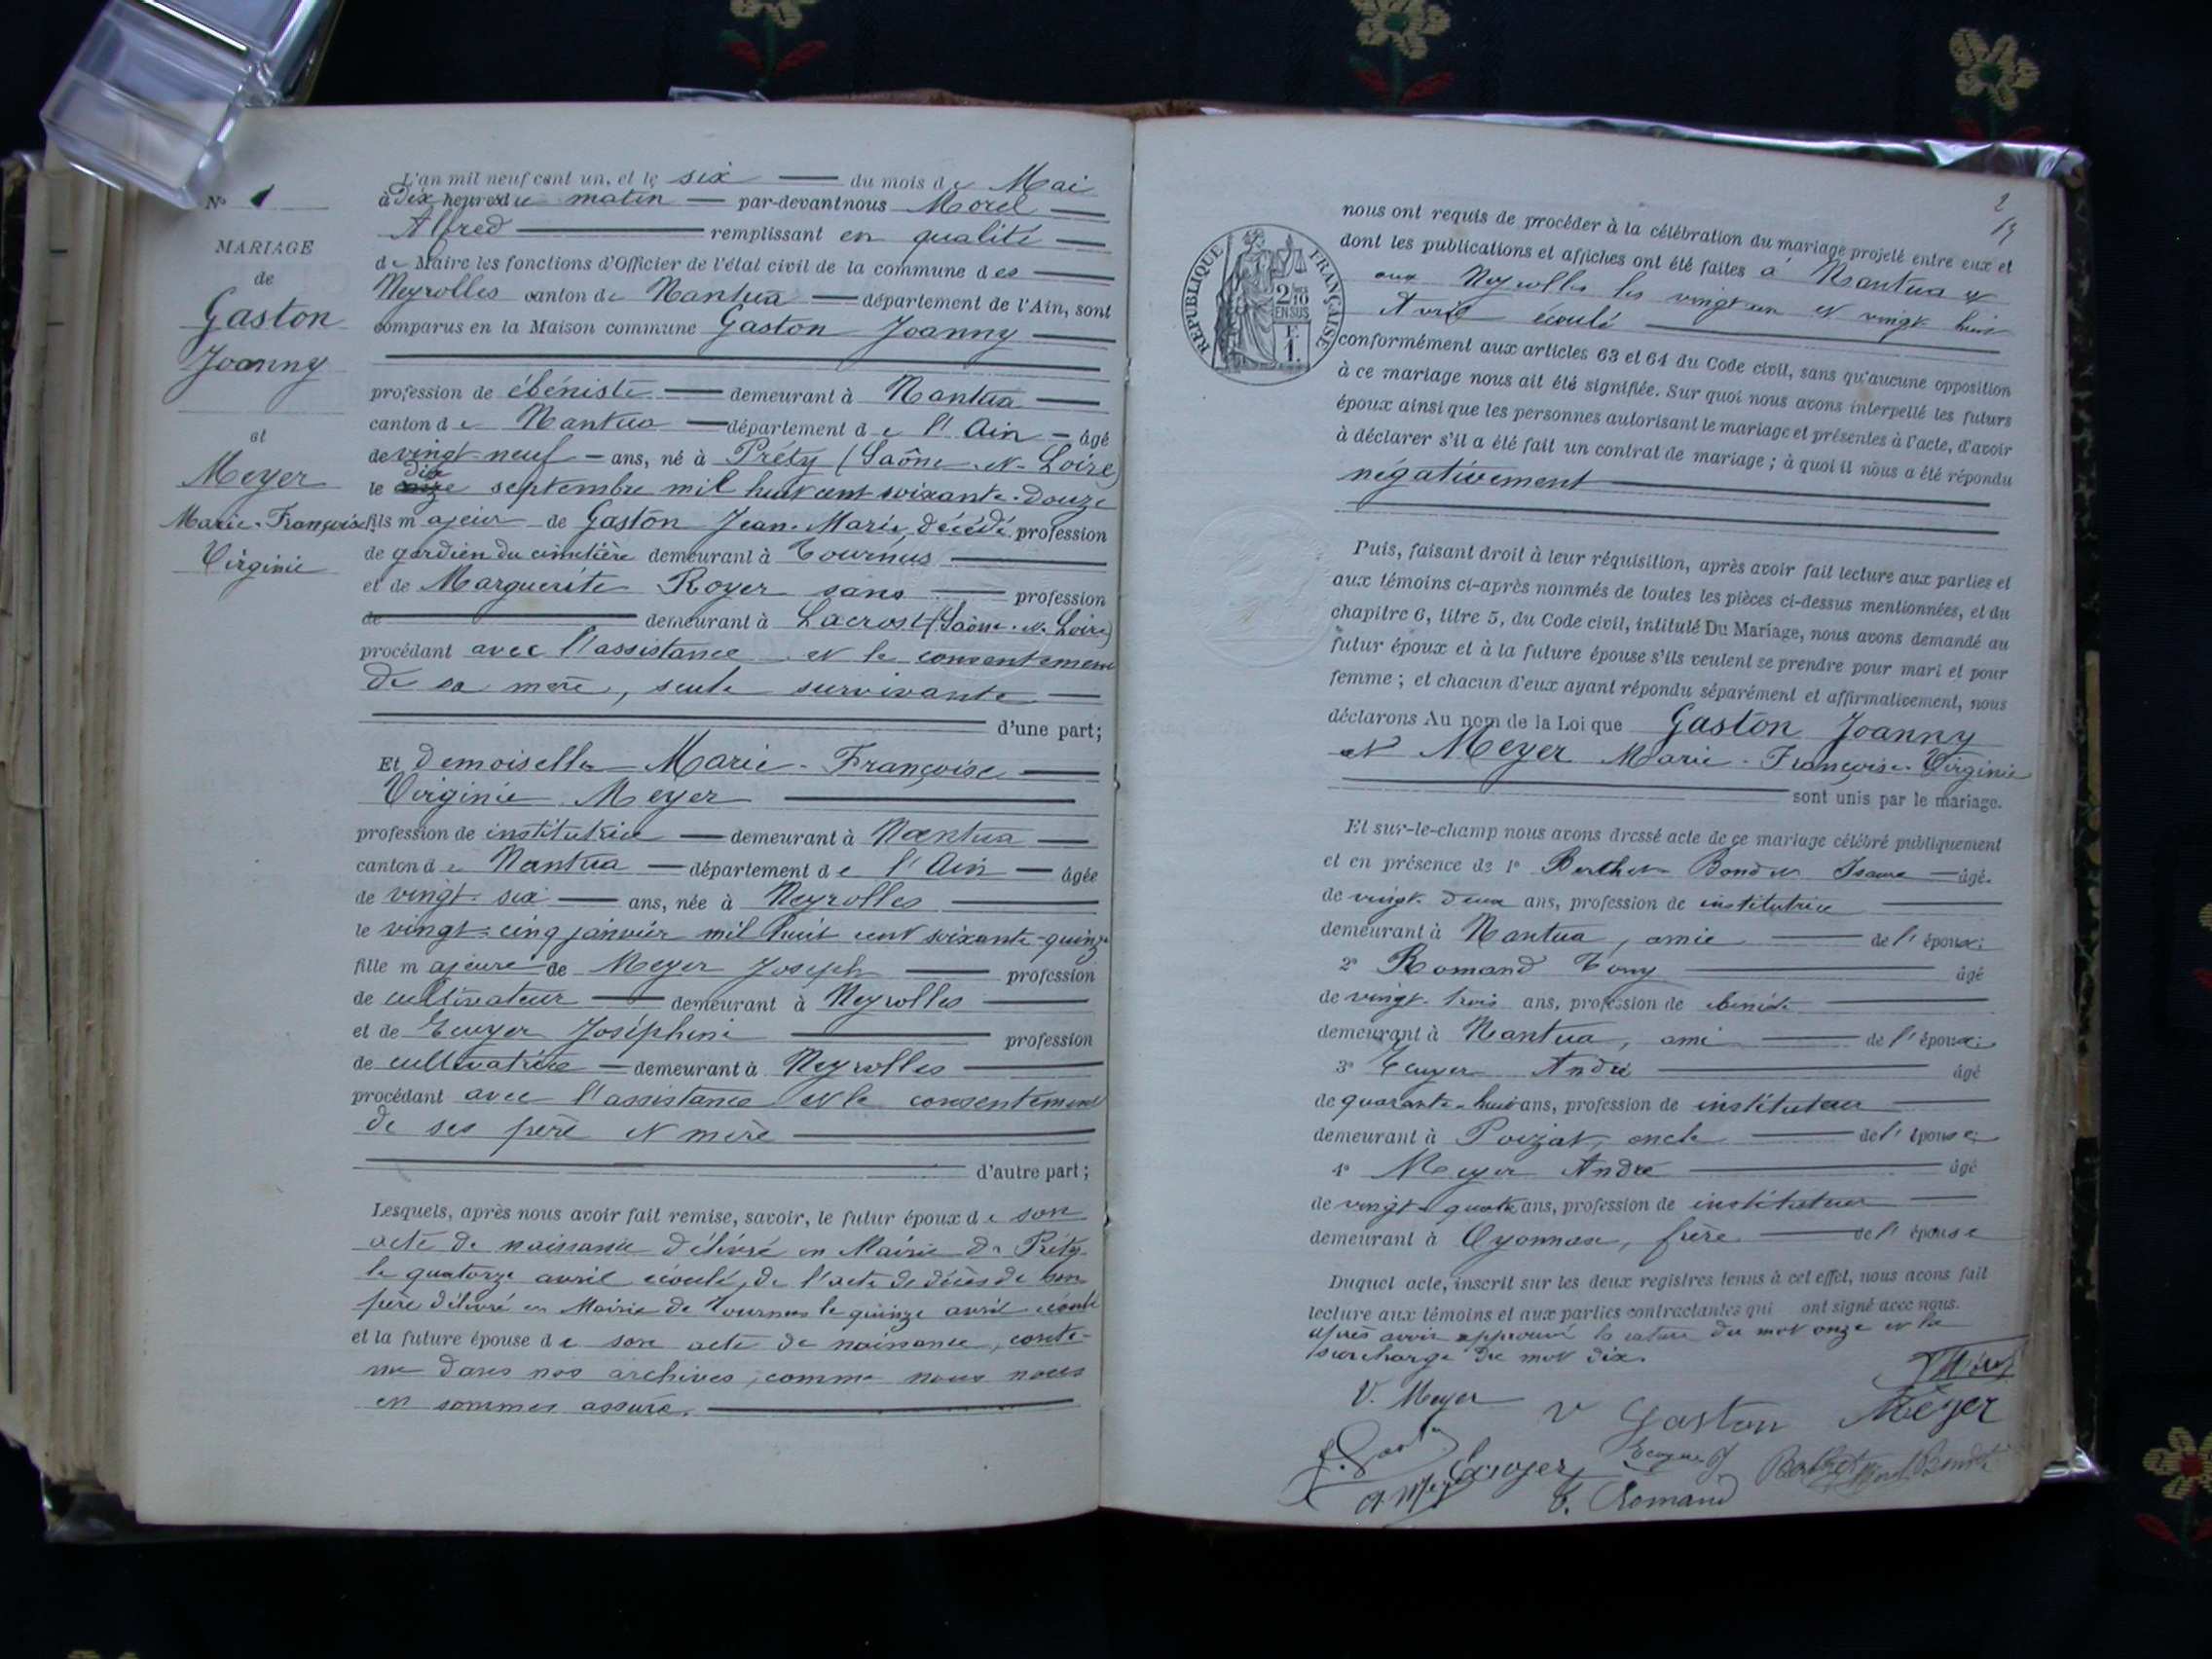 N° 1
MARIAGE
de
Gaston
Joanny
et
Meyer
Marie-Françoise
Virginie
L'an mil neuf cent un, et le six du mois de Mai
à Dix heures du matin par-devant nous Morel
Alfred remplissant en qualité
de Maire les fonctions d'Officier de l'état civil de la commune des
Neyrolles canton de Nantua département de l'Ain, sont
comparus en la Maison commune Gaston Joanny
profession de ébéniste demeurant à Nantua
canton de Nantua département de l'Ain âgé
de vingt-neuf ans, né à Préty (Saône-et-Loire)
dix
le onze septembre mil huit cent soixante-douze
fils majeur de Gaston Jean-Marie, décédé profession
de gardien du cimetière demeurant à Tournus
et de Marguerite Royer sans profession
de demeurant à Lacrost (Saône-et-Loire)
procédant avec l'assistance et le consentement
de sa mère, seule survivante
d'une part;
Et Demoiselle Marie-Françoise
Virginie Meyer
profession de institutrice demeurant à Nantua
canton de Nantua département de l'Ain âgée
de vingt-six ans, née à Neyrolles
le vingt-cinq janvier mil huit cent soixante-quinze
fille majeure de Meyer Joseph profession
de cultivateur demeurant à Neyrolles
et de Ecuyer Joséphine profession
de cultivatrice demeurant à Neyrolles
procédant avec l'assistance et le consentement
de ses père et mère
d'autre part;
Lesquels, après nous avoir fait remise, savoir, le futur époux de son
acte de naissance délivré en Mairie de Préty
le quatorze avril écoulé, de l'acte de décès de son
père délivré en Mairie de Tournus le quinze avril écoulé
et la future épouse de son acte de naissance, conte-
nu dans nos archives, comme nous nous
en sommes assuré.
2
RÉPUBLIQUE FRANÇAISE
2/10
EN SUS
F
1.
nous ont requis de procéder à la célébration du mariage projeté entre eux et
dont les publications et affiches ont été faites à Nantua et
aux Neyrolles les vingt-un et vingt-huit
Avril écoulé
conformément aux articles 63 et 64 du Code civil, sans qu'aucune opposition
à ce mariage nous ait été signifiée. Sur quoi nous avons interpellé les futurs
époux ainsi que les personnes autorisant le mariage et présentes à l'acte, d'avoir
à déclarer s'il a été fait un contrat de mariage; à quoi il nous a été répondu
négativement
Puis, faisant droit à leur réquisition, après avoir fait lecture aux parties et
aux témoins ci-après nommés de toutes les pièces ci-dessus mentionnées, et du
chapitre 6, titre 5, du Code civil, intitulé Du Mariage, nous avons demandé au
futur époux et à la future épouse s'ils veulent se prendre pour mari et pour
femme; et chacun d'eux ayant répondu séparément et affirmativement, nous
déclarons Au nom de la Loi que Gaston Joanny
et Meyer Marie-Françoise-Virginie
sont unis par le mariage.
Et sur-le-champ nous avons dressé acte de ce mariage célébré publiquement
et en présence de 1° Berthet Bondet Isaure âgé
de vingt-deux ans, profession de institutrice
demeurant à Nantua, amie de l'époux;
2° Romand Tony âgé
de vingt-trois ans, profession de ébéniste
demeurant à Nantua, ami de l'époux;
3° Ecuyer André âgé
de quarante-huit ans, profession de instituteur
demeurant à Poizat, oncle de l'épouse;
4° Meyer André âgé
de vingt-quatre ans, profession de instituteur
demeurant à Oyonnax, frère de l'épouse
Duquel acte, inscrit sur les deux registres tenus à cet effet, nous avons fait
lecture aux témoins et aux parties contractantes qui ont signé avec nous.
après avoir approuvé la rature du mot onze et la
surcharge du mot dix.
V. Meyer
V Gaston Meyer
A. Meyer Ecuyer
T. Romand
Berthet Bondet